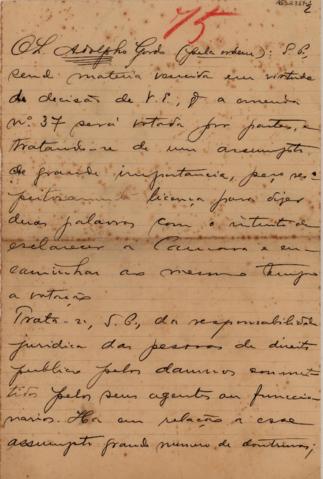 75
2
O Sr. Adolpho Gordo (pela ordem): S. P.,
sendo materia vencida em virtude
da decisão de V. E., q a emenda
nº 37 será votada por partes, e
tratando-se de um assumpto
de grande importancia, peço res-
peitosamente licença para dizer
duas palavras com o intento de
esclarecer a Camara e en-
caminhar ao mesmo tempo
a votação
Trata-se, S. P., da responsabilidade
juridica das pessoas de direito
publico pelos damnos commet-
tidos pelos seus agentes ou funccio-
narios. Ha em relação a esse
assumpto grande numero de doutrinas,